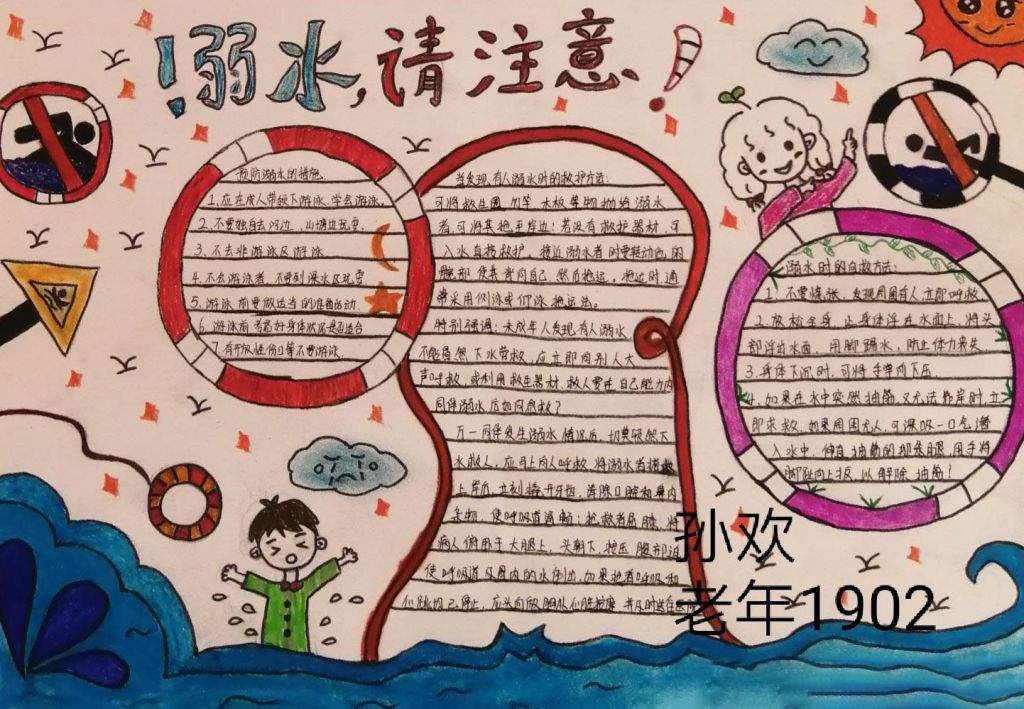 !溺水,请注意!
预防溺水的措施
1.应在成人带领下游泳,学会游泳.
2.不要独自去河边、山塘边玩耍.
3.不去非游泳区游泳
4.不会游泳者,不要到深水区玩耍
5.游泳前要做适当的准备活动
6.游泳前考虑好身体状况是否适合
7.有开放性伤口等不要游泳.
当发现有人溺水时的救护方法:
可将救生圈、竹竿、木板等物抛给溺水
者,可将其拖至岸边;若没有救护器材,可
入水直接救护。接近溺水者时要转动他的
髋部,使其背向自己,然后拖运。拖运时通
常采用侧泳或仰泳拖运法。
特别强调:未成年人发现有人溺水,
不能冒然下水营救,应立即向别人大
声呼救,或利用救生器材,救人要在自己能力内
同伴溺水后如何急救?
万一同伴发生溺水情况后,切莫贸然下
水救人,应马上向人呼救,将溺水者捞救
上岸后,立刻撬开牙齿,清除口腔和鼻内
杂物,使呼吸道通畅;抢救者屈膝,将
病人俯甩于大腿上,头朝下,按压腹部迫
使呼吸道及胃内的水倒出,如果抢者呼吸和
心跳均已停止,应
溺水时的自救方法:
1.不要慌张,发现周围有人立即呼救
2.放松全身,让身体浮在水面上,将头
部浮出水面,用脚踢水,防止体力丧失
3.身体下沉时,可将手掌向下压
4.如果在水中突然抽筋,又无法靠岸时,立
即求救.如果周围无人,可深吸一口气潜
入水中,伸直抽筋的那条腿,用手将
脚趾向上扳,以解除抽筋!
孙欢
老年1902